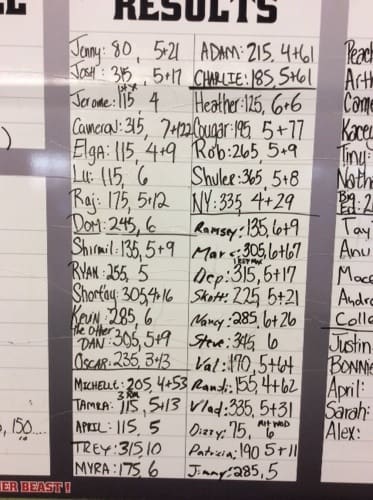 RESULTS
Jenny: 80, 5+21
Josh: 315, 5+17
Jerome: 115 4
Cameron: 315, 7+122
Elga: 115, 4+9
Lu: 115, 6
Raj: 175, 5+12
Dom: 245, 6
Shirmil: 135, 5+9
RYAN: 255, 5
Shortay: 305, 4+16
Kevin: 285, 6
the other
DAN: 305, 5+9
OSCAR: 235, 3+13
MICHELLE: 205, 4+53
TAMRA: 115, 5+13
APRIL: 115, 5
TREY: 315, 10
MYRA: 175, 6
ADAM: 215, 4+61
CHARLIE: 185, 5+61
Heather: 125, 6+6
Cougar: 195, 5+77
Rob: 265, 5+9
Shuler: 365, 5+8
NY: 335, 4+29
Ramsey: 135, 6+9
Marc: 305, 6+67
Dep: 315, 5+17
Skott: 225, 5+21
Nancy: 285, 6+26
Steve: 345, 6
Val: 170, 5+64
Randi: 155, 4+62
Vlad: 335, 5+31
Dizzy: 75, 6
Patricia: 190 5+11
Jimmy: 285, 5
Peach
Arth
Came
Kacey
Tiny:
Nath
Big
Ed: 2
Tay
Anu
Mace
Andre
Colle
Justin
BONNIE
April:
Sarah:
Alex:
, 150....
ER BEAST!